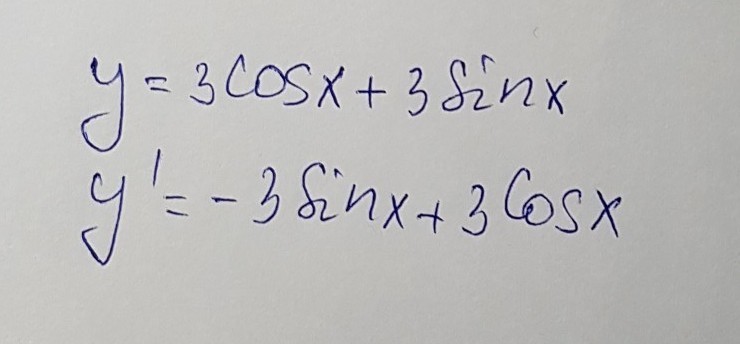 y = 3cosx + 3sinx
y' = -3sinx + 3cosx